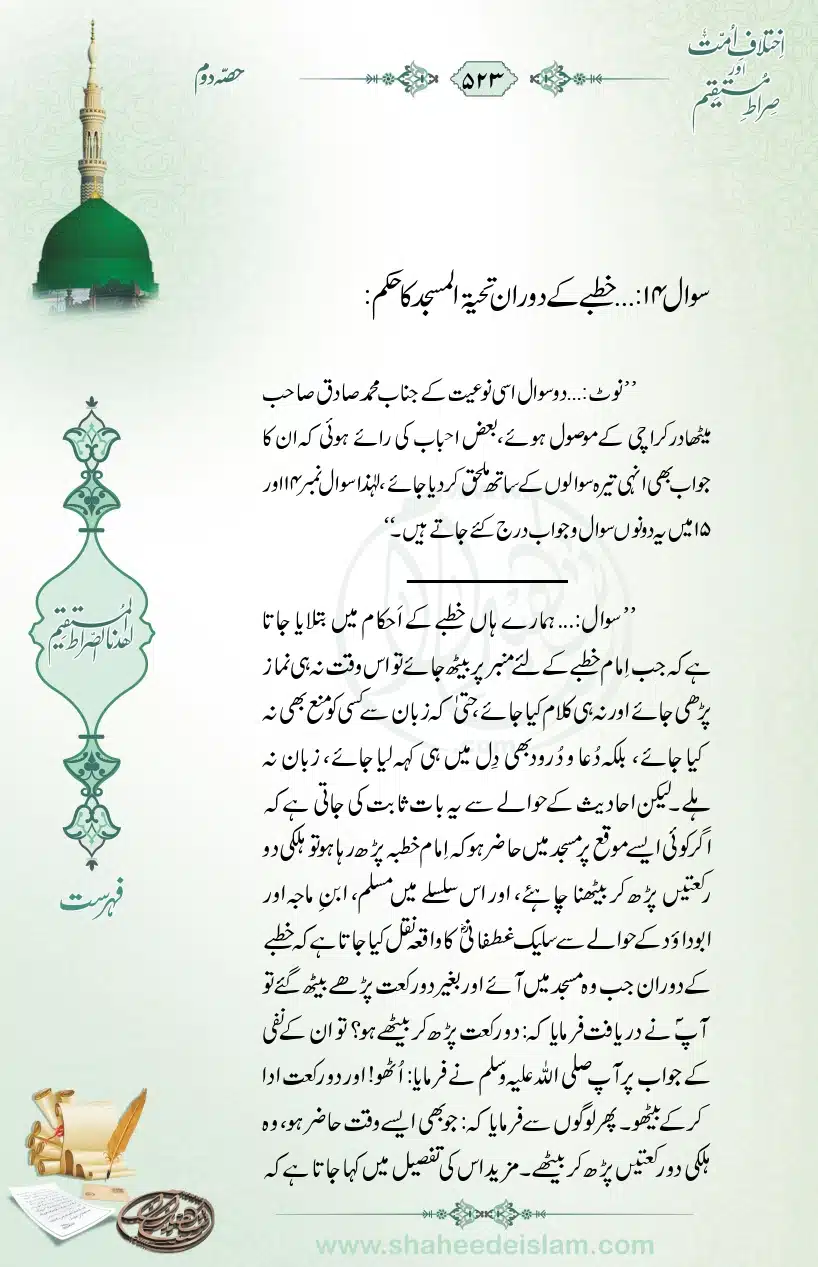 اِختلافِ اُمّت
اور
صِراطِ مُستقیم
۵۲۳
حصّہ دوم
سوال ۱۴:... خطبے کے دوران تحیۃ المسجد کا حکم:
’’نوٹ:... دو سوال اسی نوعیت کے جناب محمد صادق صاحب
میٹھادر کراچی کے موصول ہوئے، بعض احباب کی رائے ہوئی کہ ان کا
جواب بھی انہی تیرہ سوالوں کے ساتھ ملحق کردیا جائے، لہٰذا سوال نمبر ۱۴ اور
۱۵ میں یہ دونوں سوال و جواب درج کئے جاتے ہیں۔‘‘
’’سوال:... ہمارے ہاں خطبے کے اَحکام میں بتلایا جاتا
ہے کہ جب اِمام خطبے کے لئے منبر پر بیٹھ جائے تو اس وقت نہ ہی نماز
پڑھی جائے اور نہ ہی کلام کیا جائے، حتیٰ کہ زبان سے کسی کو منع بھی نہ
کیا جائے، بلکہ دُعا و دُرود بھی دِل میں ہی کہہ لیا جائے، زبان نہ
ہلے۔ لیکن احادیث کے حوالے سے یہ بات ثابت کی جاتی ہے کہ
اگر کوئی ایسے موقع پر مسجد میں حاضر ہو کہ اِمام خطبہ پڑھ رہا ہو تو ہلکی دو
رکعتیں پڑھ کر بیٹھنا چاہئے، اور اس سلسلے میں مسلم، ابنِ ماجہ اور
ابوداؤد کے حوالے سے سلیک غطفانیؓ کا واقعہ نقل کیا جاتا ہے کہ خطبے
کے دوران جب وہ مسجد میں آئے اور بغیر دو رکعت پڑھے بیٹھ گئے تو
آپؐ نے دریافت فرمایا کہ: دو رکعت پڑھ کر بیٹھے ہو؟ تو ان کے نفی
کے جواب پر آپ صلی اللہ علیہ وسلم نے فرمایا: اُٹھو! اور دو رکعت ادا
کرکے بیٹھو۔ پھر لوگوں سے فرمایا کہ: جو بھی ایسے وقت حاضر ہو، وہ
ہلکی دو رکعتیں پڑھ کر بیٹھے۔ مزید اس کی تفصیل میں کہا جاتا ہے کہ
اھدنا الصّراط المُستقیم
فہرست
www.shaheedeislam.com